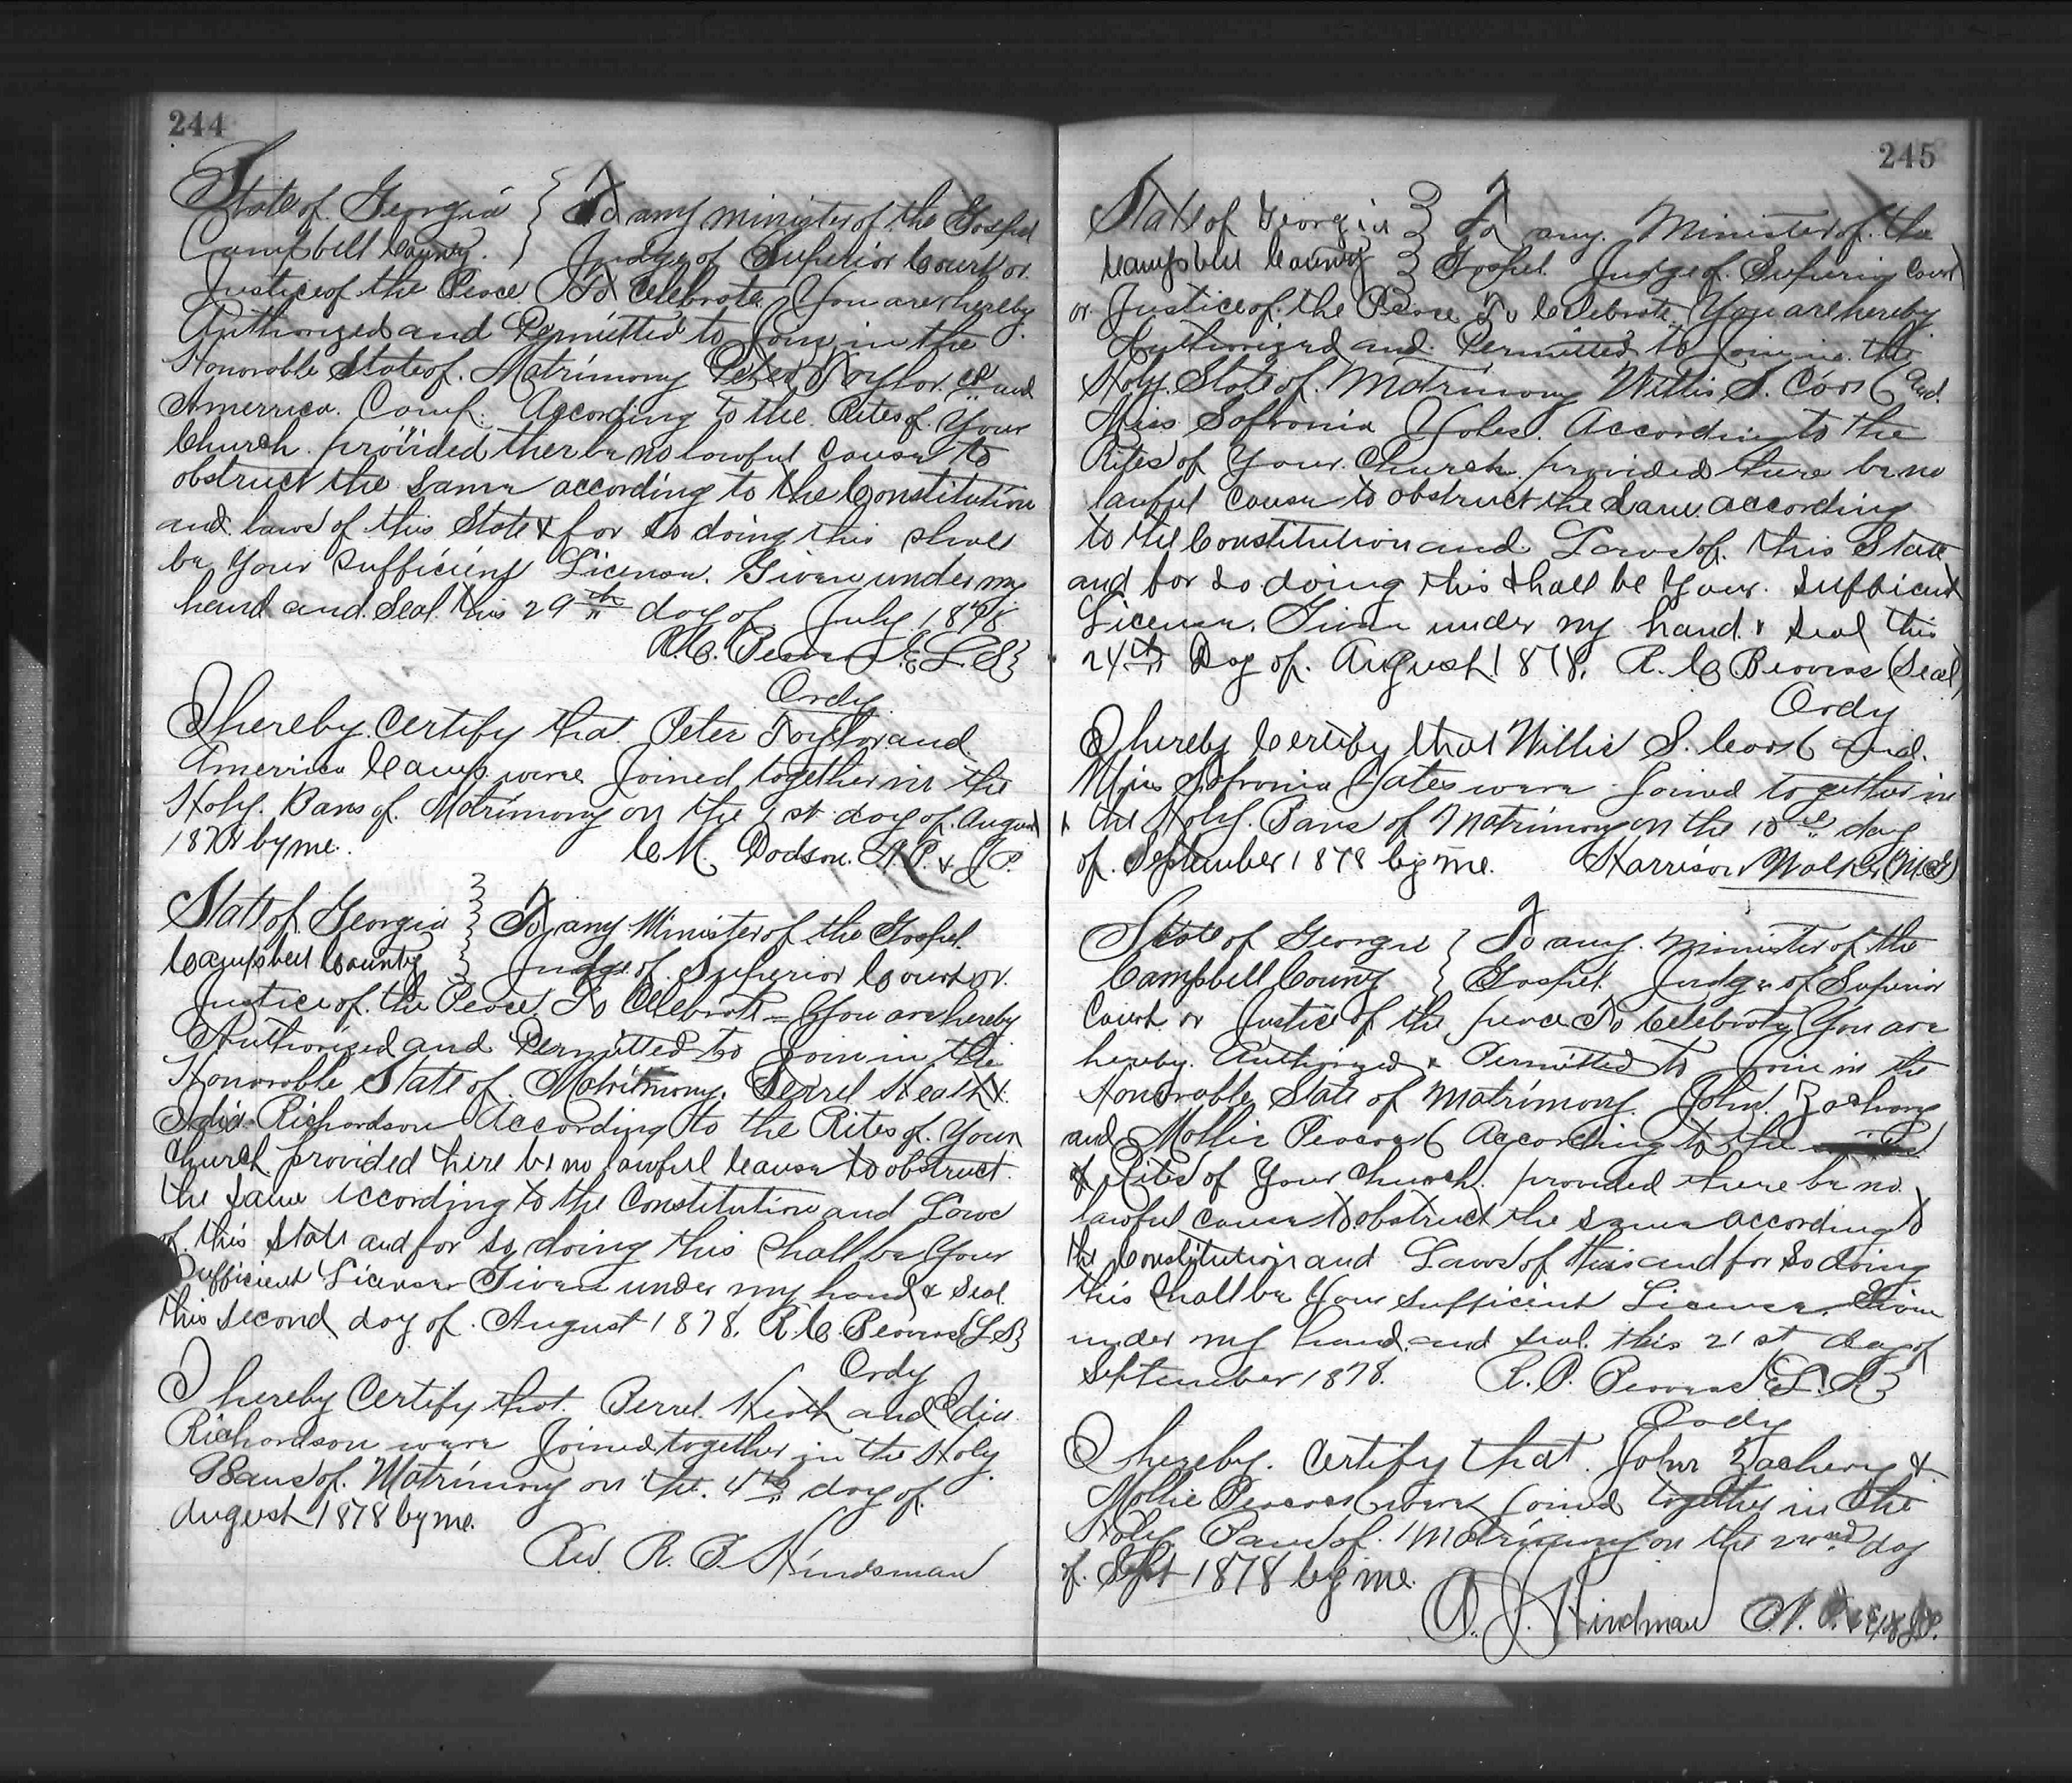 244
State of Georgia } To any minister of the Gospel
Campbell County. } Judge of Superior Court or
Justice of the Peace To Celebrate You are hereby
Authorized and Permitted to Join in the
Honorable State of Matrimony Peter Taylor and
America Camp. According to the Rites of Your
Church provided ther be no lawful Cause to
obstruct the same according to the Constitution
and laws of this State & for so doing this shall
be Your sufficient License. Given under my
hand and Seal this 29th day of July 1878
R. C. Beavers {L. S}
Ordy
I hereby Certify that Peter Taylor and
America Camp were Joined together in the
Holy Bans of Matrimony on the 1st day of August
1878 by me. C M. Dodson N. P. & J P.
State of Georgia } To any Minister of the Gospel
Campbell County } Judge of Superior Court or
Justice of the Peace To Celebrate = You are hereby
Authorized and Permitted to Join in the
Honorable State of Matrimony. Berrel Heath &
Richardson According to the Rites of Your
Church provided there be no lawful cause to obstruct
the same according to the Constitution and Laws
of this State and for so doing this shall be Your
Sufficient License Given under my hand & Seal
this second day of August 1878. R. C. Beavers {L S}
Ordy
I hereby Certify that Berrel Heath and
Richardson were Joined together in the Holy
Bans of Matrimony on the 4th day of
August 1878 by me.
Rev. R. Hindsman
245
State of Georgia } To any Minister of the
Campbell County } Gospel Judge of Superior Court
or Justice of the Peace To Celebrate You are hereby
Authorized and Permitted to Join in the
Holy State of Matrimony Willis S. and
Miss Sofronia According to the
Rites of Your Church provided there be no
lawful Cause to obstruct the same according
to the Constitution and Laws of this State
and for so doing this shall be Your sufficient
License. Given under my hand & seal this
24th Day of August 1878. R. C Beavers (Seal)
Ordy
I hereby Certify that Willis S. and
Miss Sofronia Yates were Joined together in
the Holy Bans of Matrimony on the day
of September 1878 by me. Harrison Walker (M. G)
State of Georgia } To any Minister of the
Campbell County } Gospel Judge of Superior
Court or Justice of the peace To Celebrate You are
hereby Authorized & Permitted to Join in the
Honorable State of Matrimony John Zachery
and Mollie According to the
Rites of Your Church provided there be no
lawful cause to obstruct the same according to
the Constitution and Laws of this and for so doing
this shall be Your sufficient License. Given
under my hand and seal this 21st day of
September 1878. R. C. Beavers {L. S}
Ordy
I hereby Certify that John Zachery &
Mollie were Joined together in the
Holy Bans of Matrimony on the 22nd day
of Sept 1878 by me.
Hindman N. P.